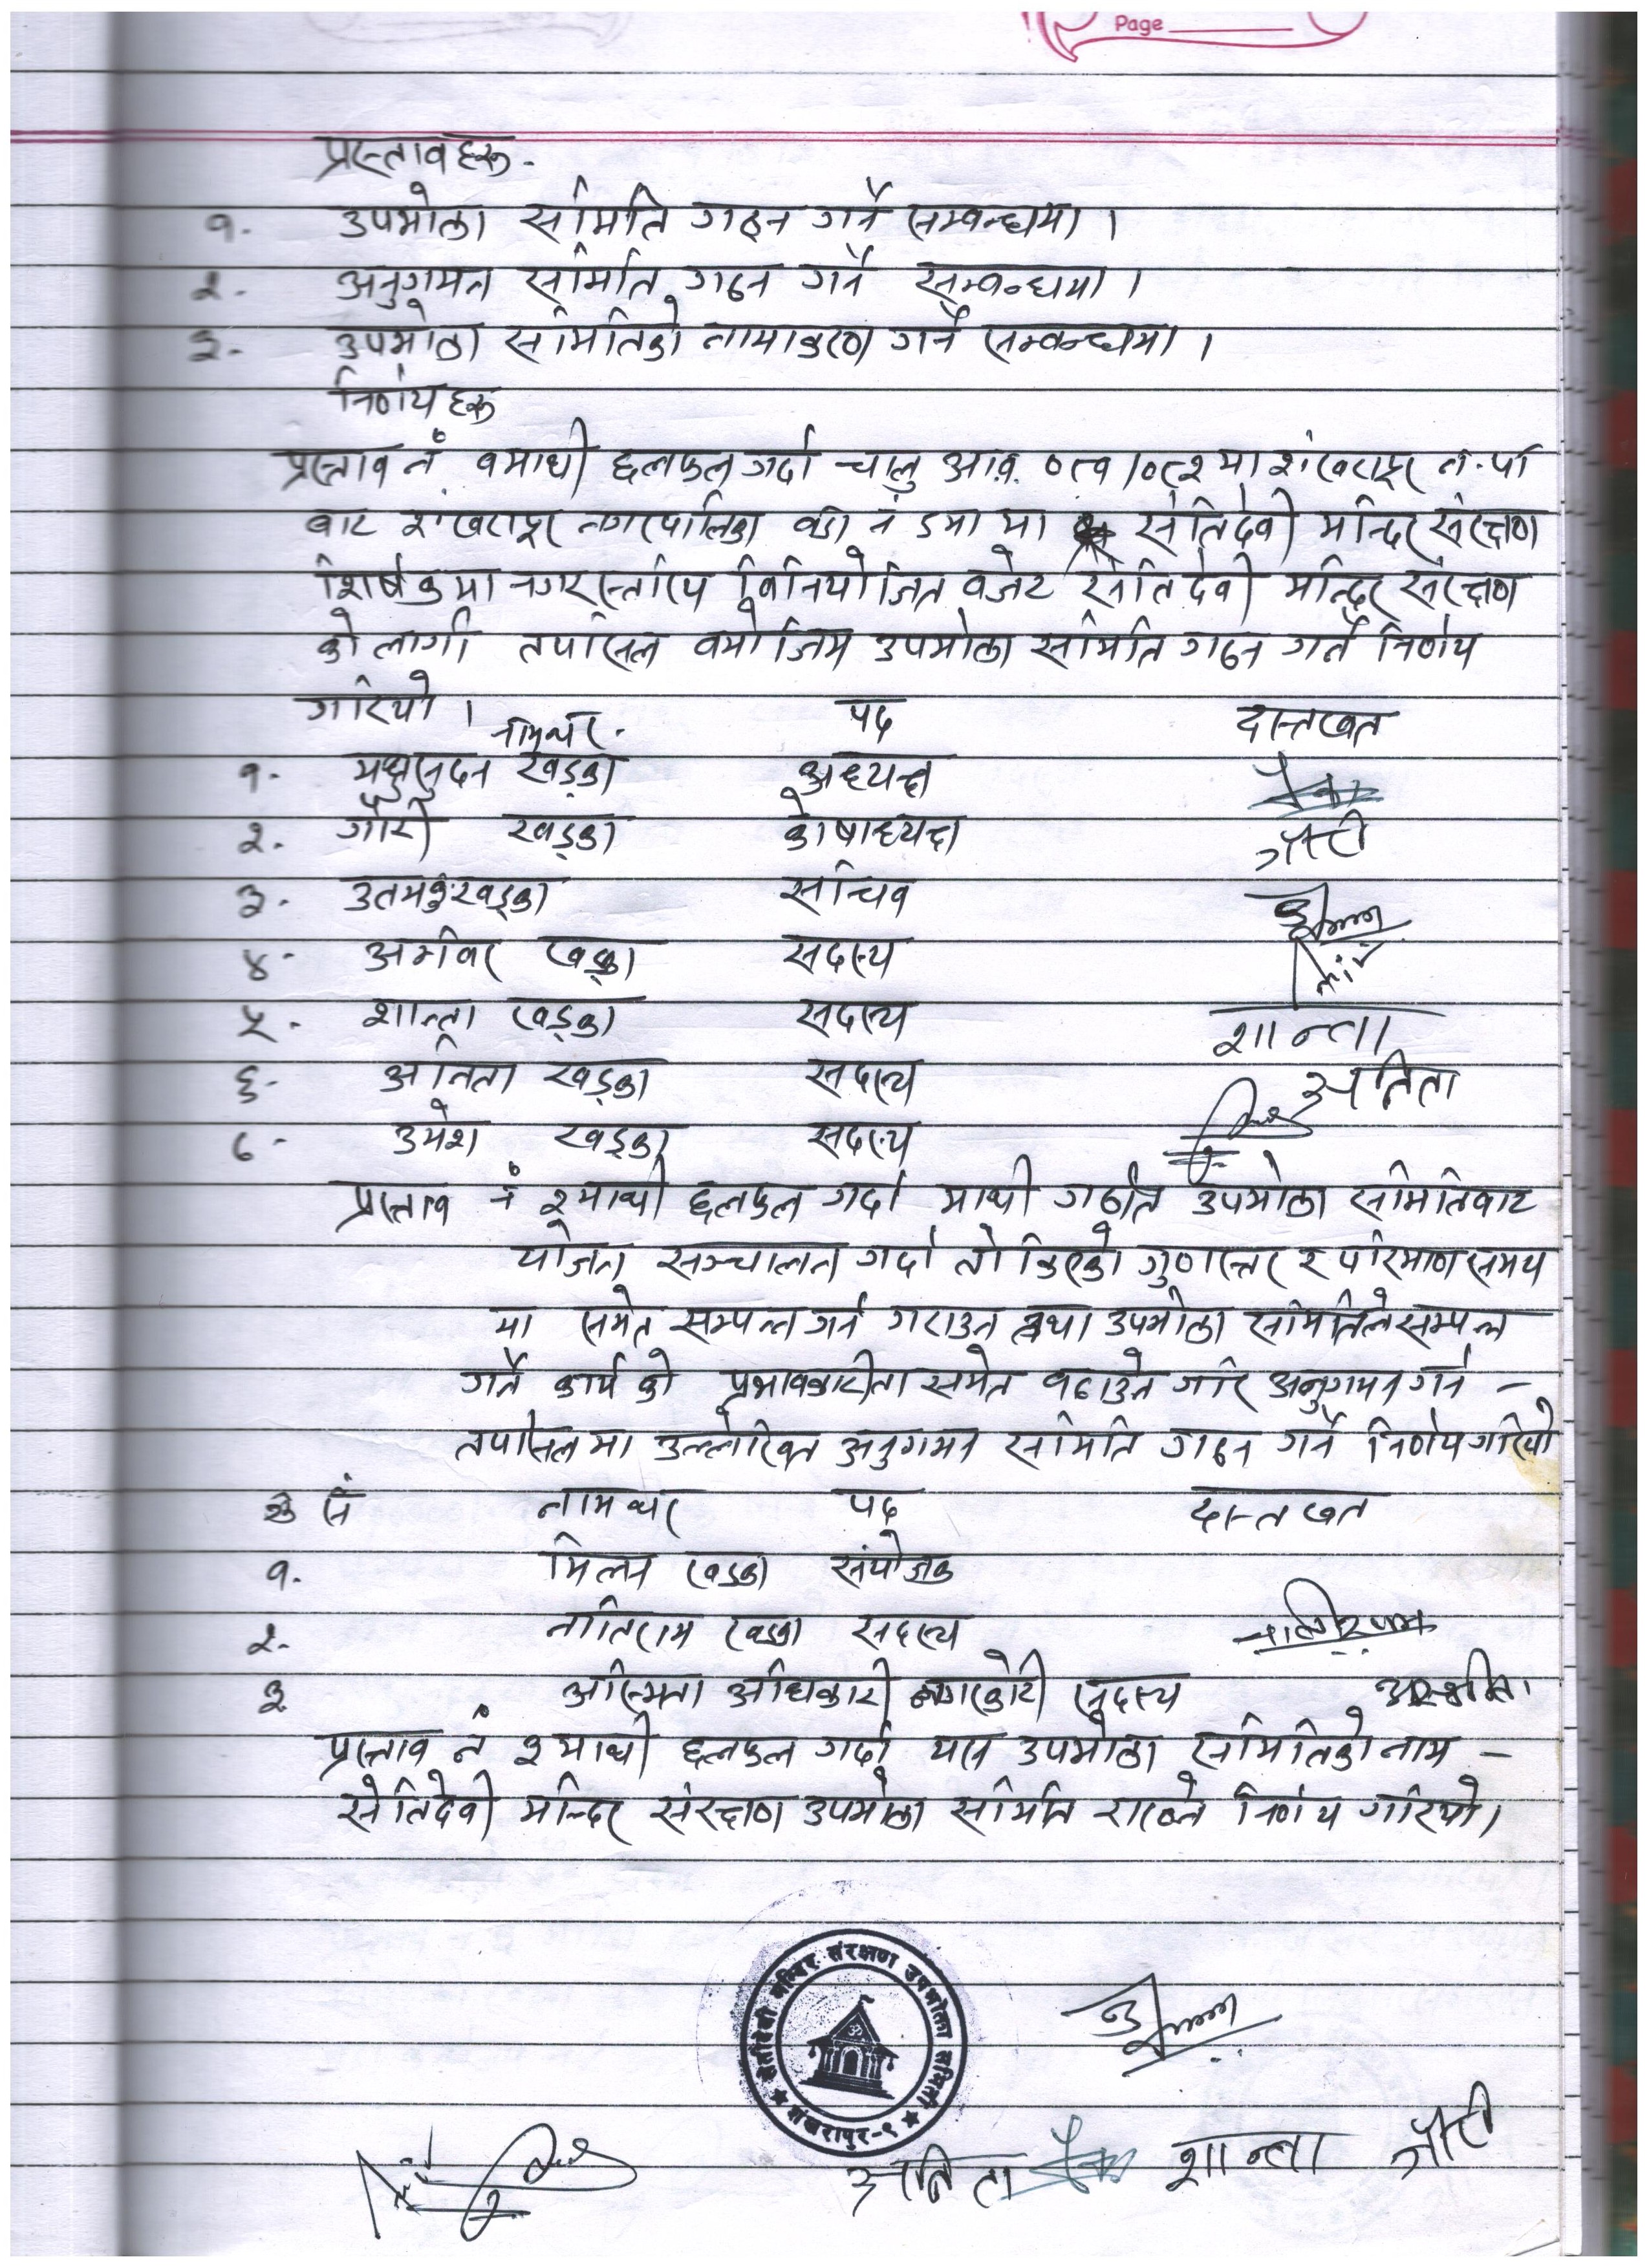 Page
प्रस्तावहरू.
१. उपभोक्ता समिति गठन गर्ने सम्वन्धमा ।
२. अनुगमन समिति गठन गर्ने सम्वन्धमा ।
३. उपभोक्ता समितिको नामाकरण गर्ने सम्वन्धमा ।
निर्णयहरू
प्रस्ताव नं १माथी छलफल गर्दा चालु आ.व. ०८१/०८२ मा शंखरापुर न.पा
बाट शंखरापुर नगरपालिका वडा नं मा सेतिदेवी मन्दिर संरक्षण
शिर्षकमा नगरस्तरिय विनियोजित वजेट सेतिदेवी मन्दिर संरक्षण
को लागी तपसिल वमोजिम उपभोक्ता समिति गठन गर्ने निर्णय
गरियो ।
नामथर. पद दस्तखत
१. मधुसुदन खड्का अध्यक्ष
२. गौरी खड्का कोषाध्यक्ष गौरी
३. उतमकुःखड्का सचिव
४. अमिवर खड्का सदस्य
५. शान्ता खड्का सदस्य शान्ता
६. अनिता खड्का सदस्य अनिता
७. उमेश खड्का सदस्य
प्रस्ताव नं २माथी छलफल गर्दा माथी गठीत उपभोक्ता समितिवाट
योजना सञ्चालन गर्दा तोकिएको गुणस्तर र परिमाण समय
मा समेत सम्पन्न गर्न गराउन तथा उपभोक्ता समितिले सम्पन्न
गर्ने कार्य को प्रभावकारीता समेत वढाउने गरि अनुगमन गर्न –
तपसिलमा उल्लेखित अनुगमन समिति गठन गर्ने निर्णय गरियो
क्र सं नामथर पद दस्तखत
१. मिलन खड्का संयोजक
२. नातिराम खड्का सदस्य नातिराम
३ अस्मिता अधिकारी नगरकोटी सदस्य अस्मीता
प्रस्ताव नं ३माथी छलफल गर्दा यस उपभोक्ता समितिको नाम –
सेतिदेवी मन्दिर संरक्षण उपभोक्ता समिति राख्ने निर्णय गरियो।
सेतीदेवी मन्दिर संरक्षण उपभोक्ता समिती
★ शंखरापुर-९ ★
अनिता शान्ता गौरी